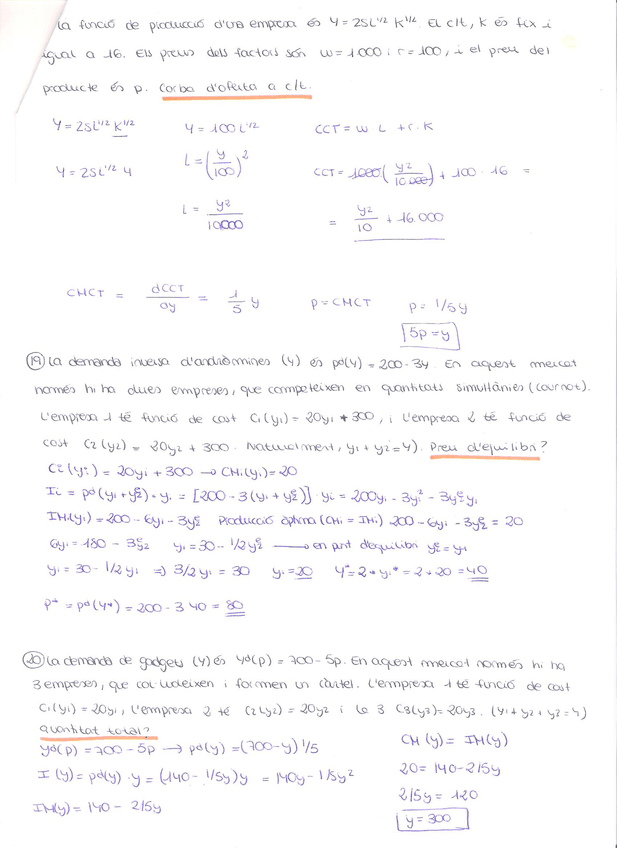 La funció de producció d'una empresa és Y = 25L^1/2 K^1/2. El c/t, K és fix i
igual a 16. Els preus dels factors són w = 1000 i r = 100, i el preu del
producte és p. Corba d'oferta a c/t.
Y = 25L^1/2 K^1/2 Y = 100 L^1/2 CCT = w L + r · K
Y = 25L^1/2 4 L = (y/100)^2 CCT = 1000 (y2/10.000) + 100 · 16 =
L = y2/10.000 = y2/10 + 16.000
CMCT = dCCT/dy = 1/5 y P = CMCT P = 1/5y
5p = y
19 La demanda inversa d'andròmines (Y) és pd(y) = 200 - 3Y. En aquest mercat
només hi ha dues empreses, que competeixen en quantitats simultànies (cournot).
L'empresa 1 té funció de cost C1(y1) = 20y1 + 300, i l'empresa 2 té funció de
cost C2(y2) = 20y2 + 300. Naturalment, y1 + y2 = Y). Preu d'equilibri?
Ci(yi) = 20yi + 300 → CMi(yi) = 20
Ii = pd(y1 + y2e) · y1 = [200 - 3(y1 + y2e)] · y1 = 200y1 - 3y1^2 - 3y2e y1
IMi(y1) = 200 - 6y1 - 3y2e Producció òptima (CMi = IMi) 200 - 6y1 - 3y2e = 20
6y1 = 180 - 3y2e y1 = 30 - 1/2y2e → en punt d'equilibri y2e = y1
y1 = 30 - 1/2y1 => 3/2y1 = 30 y1 = 20 Y* = 2 · y1* = 2 · 20 = 40
P* = pd(Y*) = 200 - 3 40 = 80
20 La demanda de gadgets (Y) és yd(p) = 700 - 5p. En aquest mercat només hi ha
3 empreses, que col·ludeixen i formen un càrtel. L'empresa 1 té funció de cost
C1(y1) = 20y1, l'empresa 2 té C2(y2) = 20y2 i la 3 C3(y3) = 20y3. (y1 + y2 + y3 = Y)
quantitat total?
yd(p) = 700 - 5p → pd(y) = (700 - y) 1/5 CM(y) = IM(y)
I(y) = pd(y) · y = (140 - 1/5y)y = 140y - 1/5y^2 20 = 140 - 2/5y
IM(y) = 140 - 2/5y 2/5y = 120
y = 300